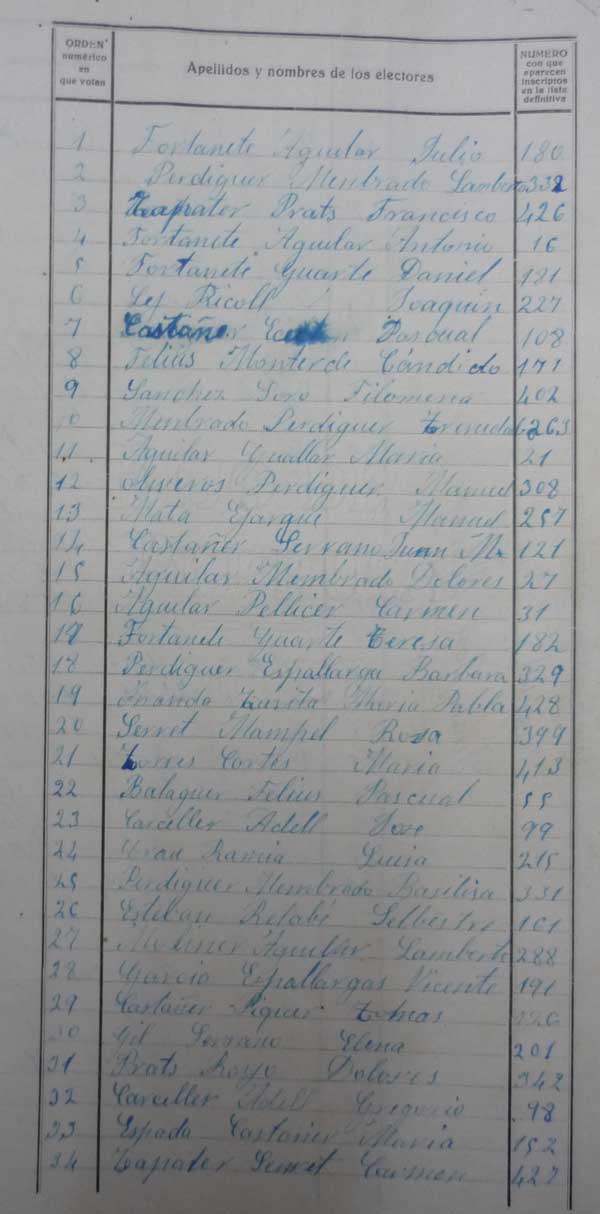 ORDEN
numérico
en
que votan
Apellidos y nombres de los electores
NUMERO
con que
aparecen
inscriptos
en la lista
definitiva
1 Fortanete Aguilar Julio 180
2 Perdiguer Menbrado Lamberto 332
3 Zapater Prats Francisco 426
4 Fortanete Aguilar Antonio 16
5 Fortanete Yuarte Daniel 181
6 Lej Ricoll Joaquin 227
7 Castañer Pascual 108
8 Felius Monterde Cándido 171
9 Sanchez Soro Filomena 402
10 Menbrado Perdiguer 263
11 Aguilar Cuallar Maria 21
12 Oliveros Perdiguer Manuel 308
13 Mata Ejarque Manuel 257
14 Castañer Serrano Juan Mr 121
15 Aguilar Membrado Dolores 27
16 Aguilar Pellicer Carmen 31
19 Fortanete Yuarte Teresa 182
18 Perdiguer Espallarga Barbara 329
19 Maria Pabla 428
20 Serret Mampel Rosa 399
21 Torres Cortés Maria 413
22 Balaguer Felius Pascual 55
23 Carceller Adell Jose 99
24 Grau Luisa 215
25 Perdiguer Membrado Basilisa 331
26 Estevan Selbestre 161
27 Moliner Aguilar Lamberto 288
28 Garcia Espallargas Vicente 191
29 Castañer Piquer Tomas 126
30 Gil Serrano Elena 201
31 Prats Royo Dolores 342
32 Carceller Adell Gregorio 98
33 Espada Castañer Maria 152
34 Zapater Serret Carmen 427